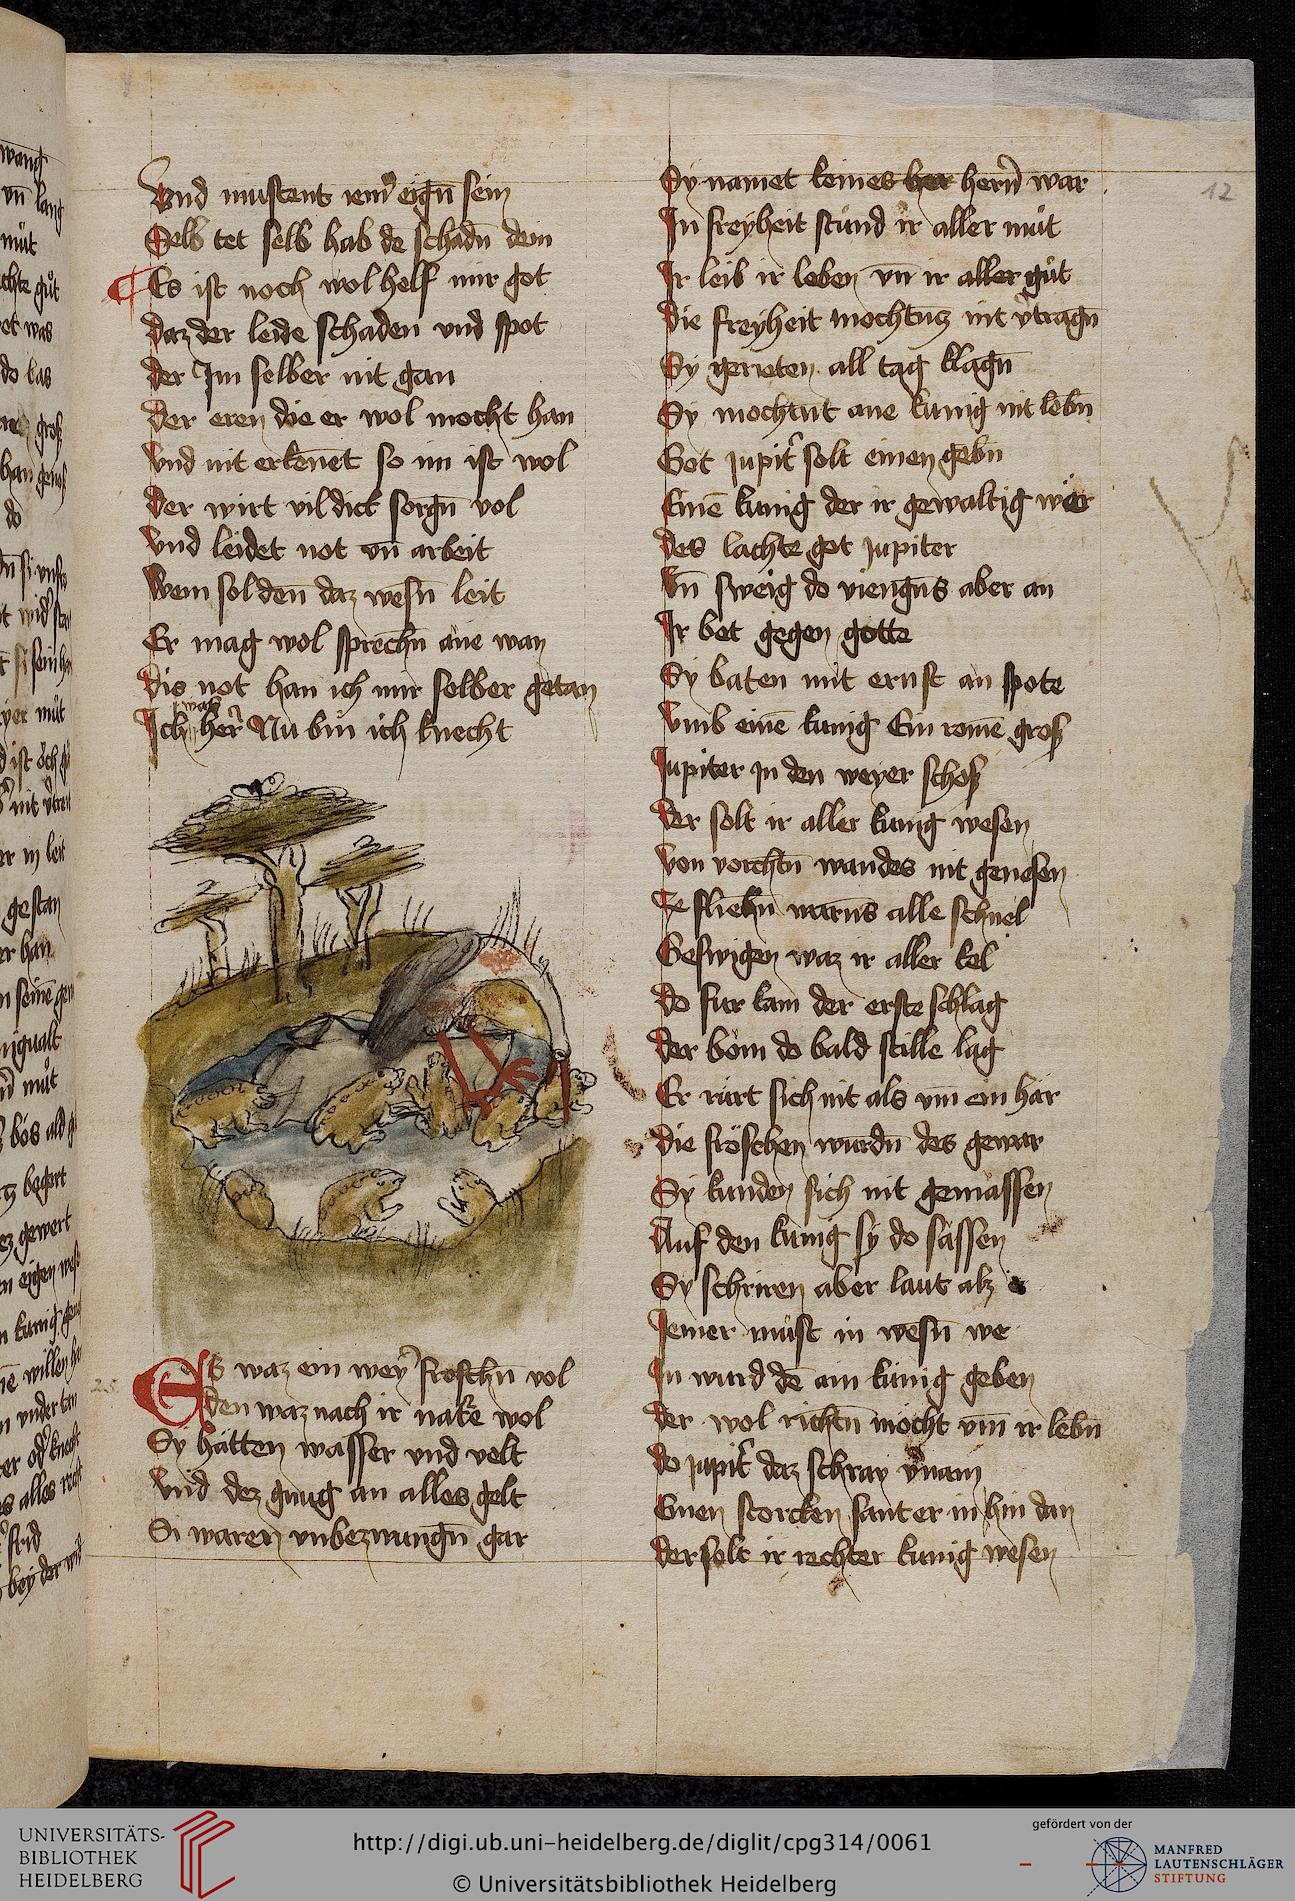 Vnd mustent iem᷑ eign̄ sein
Selb tet selb hab de schadn̄ dein
Es ist noch wol helf mir got
daz der leide schaden vnd spot
der Im selber nit gan
der eren die er wol mocht han
vnd nit erkēnet so im ist wol
der wirt vil dick sorgn̄ vol
vnd leidet not vn̄ arbeit
wem sol den̄ daz wesn̄ leit
Er mag wol sprechn̄ ane wan
dis not han ich mir selber getan
Ich was her᷑ Nu bin ich knecht
Es waz ein wey᷑ froschn̄ vol
den waz nach ir natr̄e wol
Sy hatten wasser vnd velt
vnd dez gnug an alles gelt
Si waren vnbezwungn̄ gar
Sy namet keines her hern̄ war
In freyheit stůnd ir aller můt
Ir leib ir leben vn̄ ir aller gůt
die freyheit mochtn̄s nit v᷑tragn̄
Sy gerieten all tag klagn̄
Sy mochtnt ane kunig nit lebn̄
Got jupit᷑ solt einen gebn̄
Einē kunig der ir gewaltig wer
des lachte got Jupiter
vn̄ sweig do viengn̄s aber an
Ir bet gegen gotte
Sy baten mit ernst an spote
vmb einē kunig Ein romē groß
Jupiter in den weyer schoß
der solt ir aller kunig wesen
von vorchtn̄ wandes nit genesen
Ze fliehn̄ warn̄s alle schnel
Geswigen waz ir aller kel
do fur kam der erste schlag
der bom do bald stille lag
Er růrt sich nit als vm̄ ein har
die fröschen wurdn̄ des gewar
Sy kunden sich nit gemassen
Auf den kunig sy do sassen
Sy schriren aber laut alz e
Jemer můst in wesn̄ we
In wurd dē ain kunig geben
der wol richtn̄ mocht vm̄ ir lebn̄
do jupit᷑ daz schray v᷑nam
Einen storcken sant er in hin dan
der solt ir rechter kunig wesen
12
25.
UNIVERSITÄTS-
BIBLIOTHEK
HEIDELBERG
http://digi.ub.uni-heidelberg.de/diglit/cpg314/0061
© Universitätsbibliothek Heidelberg
gefördert von der
MANFRED
LAUTENSCHLÄGER
STIFTUNG